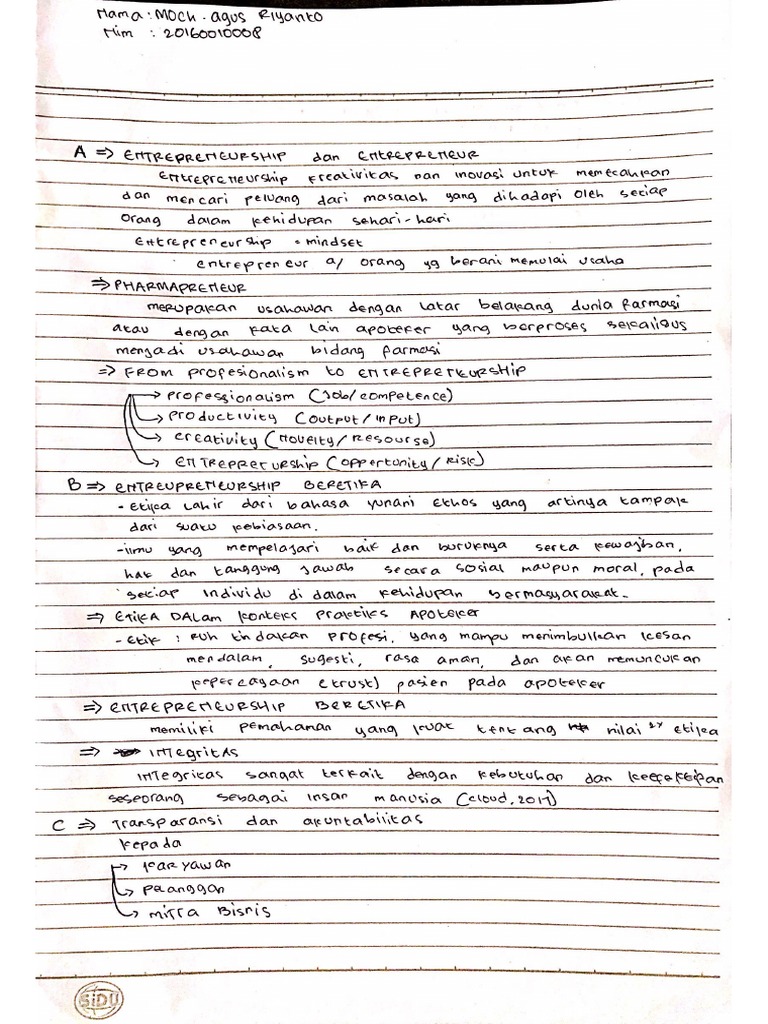 Nama : MOCH. Agus Riyanto
Nim : 20160010008
A => ENTREPRENEURSHIP dan ENTREPRENEUR
Entrepreneurship kreativitas nan inovasi untuk memecahkan
dan mencari peluang dari masalah yang dihadapi oleh setiap
orang dalam kehidupan sehari-hari
Entrepreneurship = mindset
entrepreneur a/ orang yg berani memulai usaha
=> PHARMAPRENEUR
merupakan usahawan dengan latar belakang dunia farmasi
atau dengan kata lain apoteker yang berproses sekaligus
menjadi usahawan bidang farmasi
=> FROM profesionalism to ENTREPRENEURSHIP
→ professionalism (Job/competence)
→ PRODUCTIVITY (output/input)
→ creativity (Novelty/Resourse)
→ ENTREPRETURSHIP (oppertunity/Risk)
B => ENTREUPRENEURSHIP BERETIKA
- etika lahir dari bahasa yunani ethos yang artinya tampak
dari suatu kebiasaan.
- ilmu yang mempelajari baik dan buruknya serta kewajiban,
hak dan tanggung jawab secara sosial maupun moral, pada
setiap individu di dalam kehidupan bermasyarakat.
=> ETIKA DALAM KONTEKS PRAKTIKS APOTEKER
- etik : Ruh tindakan profesi, yang mampu menimbulkan kesan
mendalam, sugesti, rasa aman, dan akan memunculkan
kepercayaan (trust) pasien pada apoteker
=> ENTREPRENEURSHIP BERETIKA
memiliki pemahaman yang kuat tentang nilai ²x etika
=> INTegritas
INTegritas sangat terkait dengan kebutuhan dan
seseorang sebagai insan manusia (cloud, 2017)
C => Transparansi dan akuntabilitas
kepada
→ Karyawan
→ Planggan
→ mitra Bisnis
SIDU